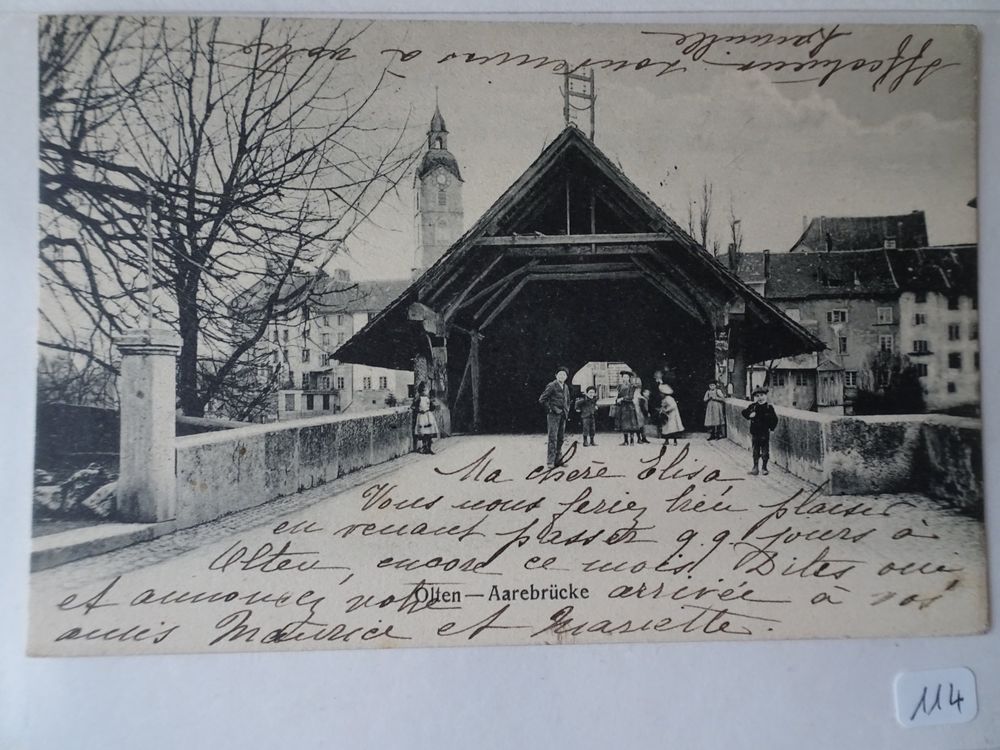 Ma chère Elisa
Vous nous feriez bien plaisir
en venant passer q.q. jours à
Olten, encore ce mois. Dites oui
et annoncez votre arrivée à vos
amis Maurice et Mariette.
Olten — Aarebrücke
Affectueux souvenirs à votre
famille
114